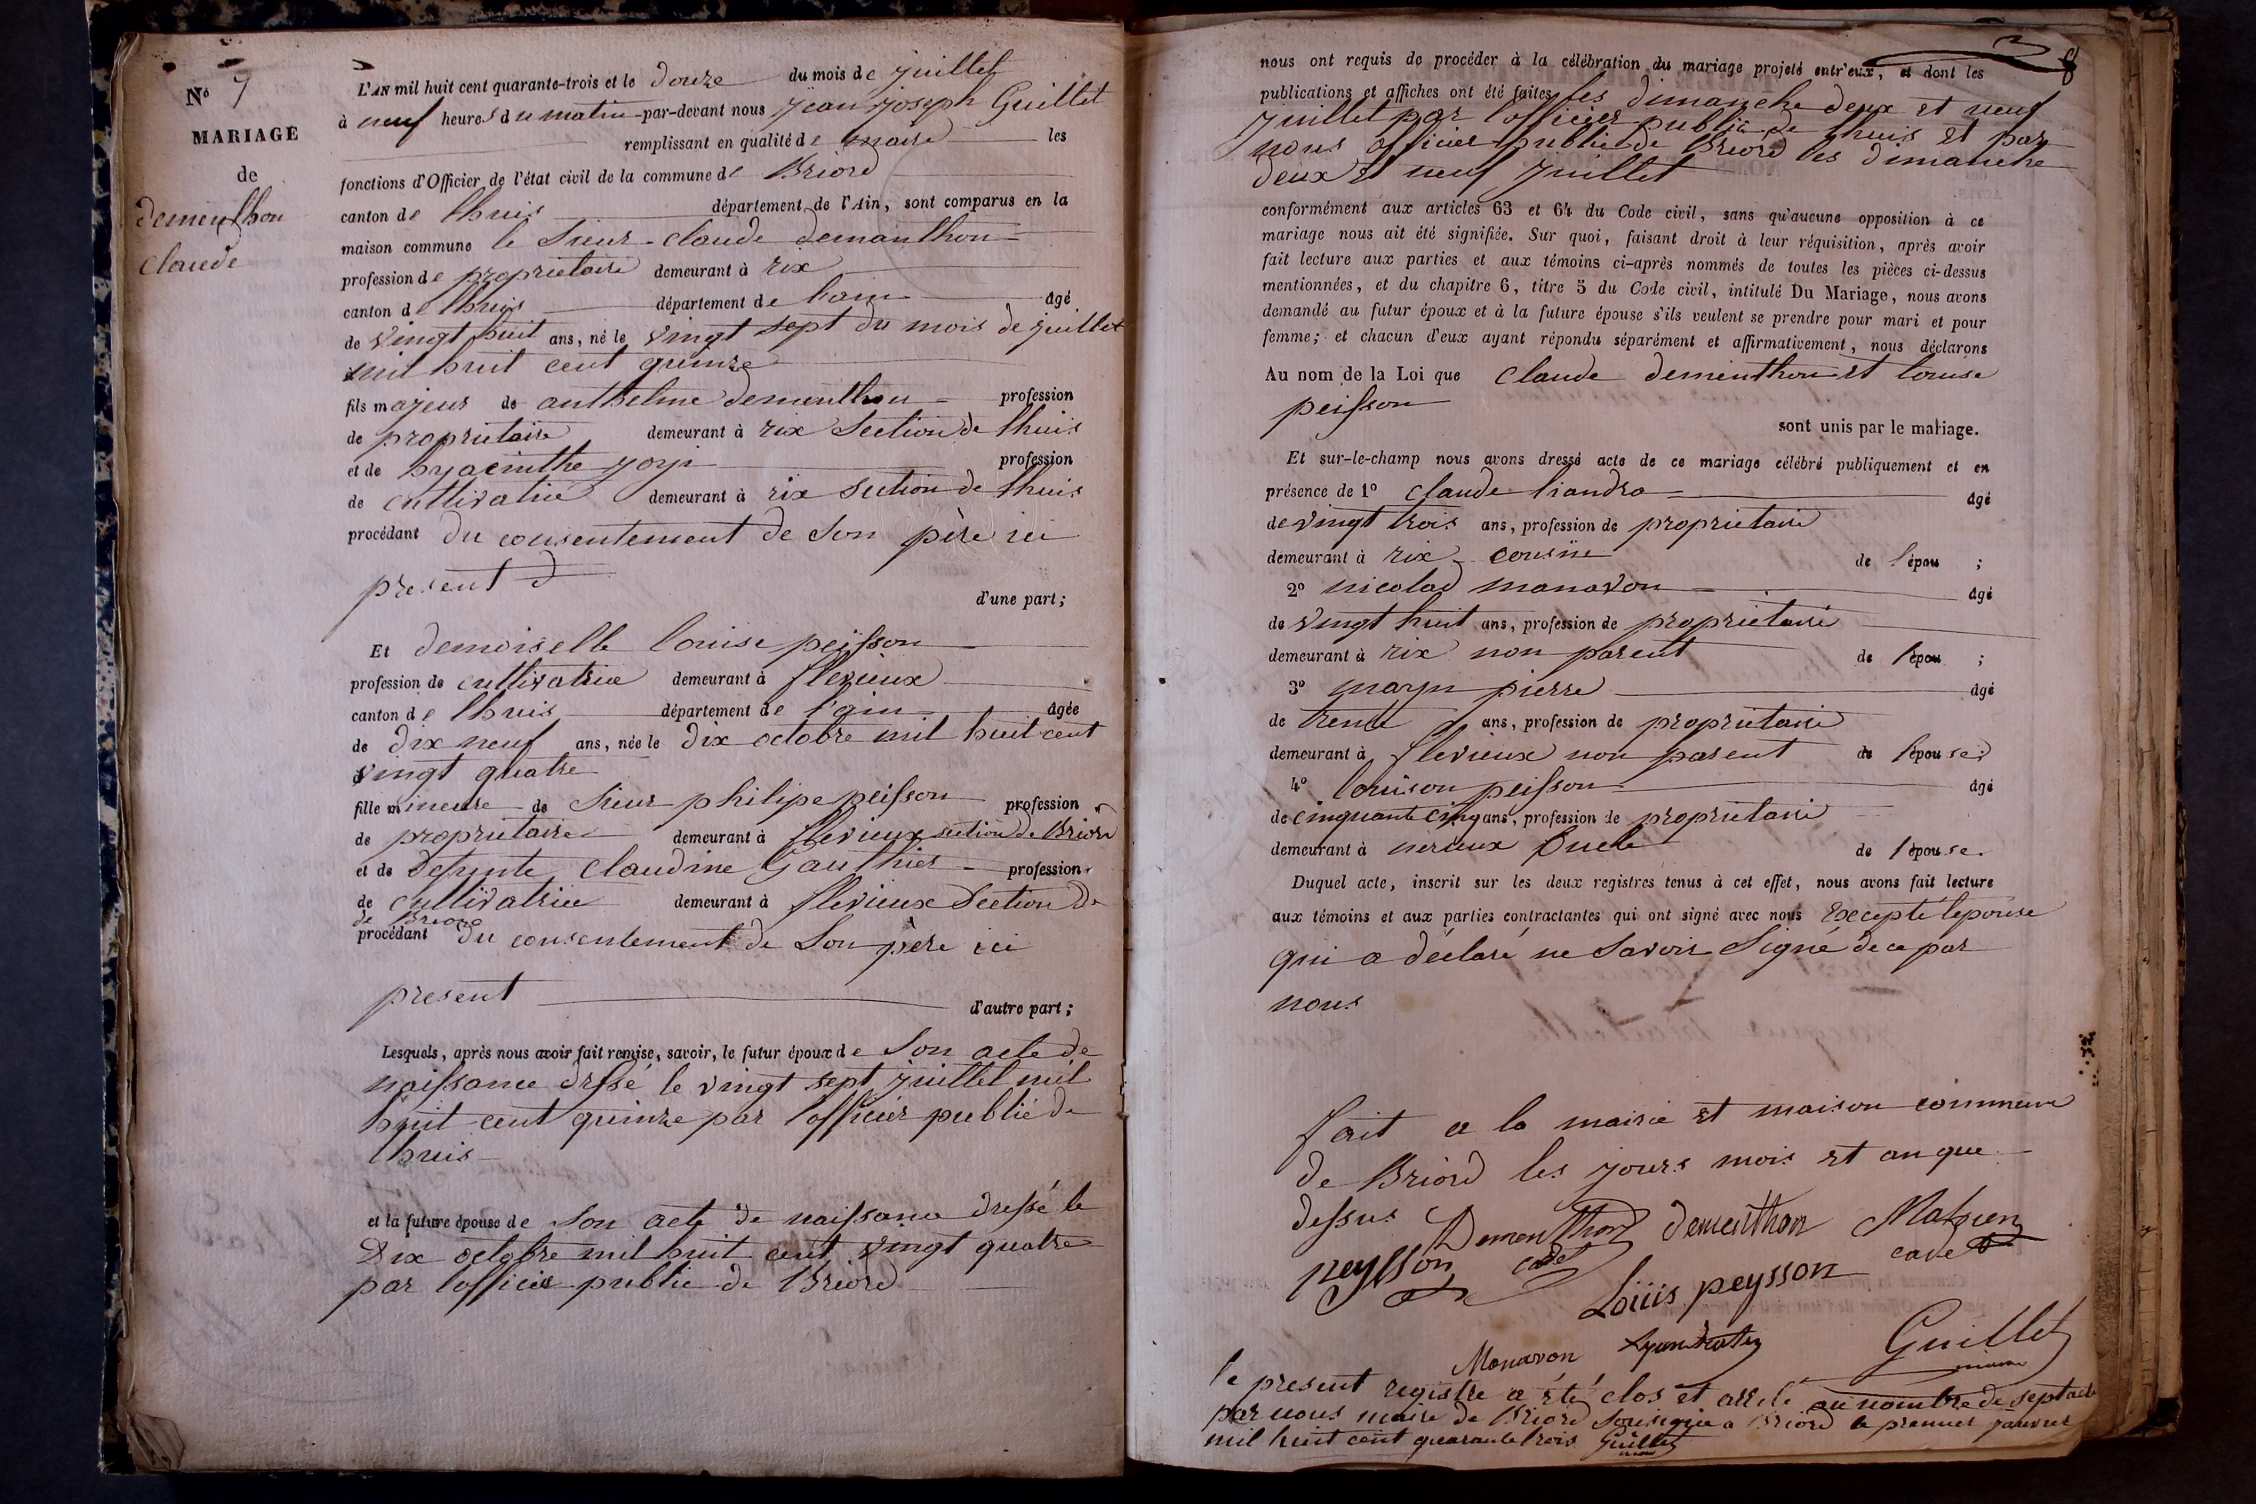 N° 7
MARIAGE
de
dementhon
claude
L'AN mil huit cent quarante-trois et le douze du mois de juillet
à neuf heures du matin par-devant nous jean joseph Guillet
remplissant en qualité de maire les
fonctions d'Officier de l'état civil de la commune de Briord
canton de lhuis département de l'Ain, sont comparus en la
maison commune le Sieur claude demanthon
profession de proprietaire demeurant à rix
canton de lhuis département de lain âgé
de vingt huit ans, né le vingt sept du mois de juillet
mil huit cent quinze
fils majeur de anthelme dementhon profession
de proprietaire demeurant à rix Section de lhuis
et de hyacinthe profession
de cultivatrice demeurant à rix section de lhuis
procédant du consentement de Son père ici
present
d'une part;
Et demoiselle louise peisson
profession de cultivatrice demeurant à flevieux
canton de lhuis département de l'ain âgée
de dix neuf ans, née le dix octobre mil huit cent
vingt quatre
fille mineure de Sieur philipe peisson profession
de proprietaire demeurant à flevieux section de Briord
et de defunte Claudine Gauthier profession
de cultivatrice demeurant à flevieux Section de
de Briord
procédant du consentement de Son père ici
present
d'autre part;
Lesquels, après nous avoir fait remise, savoir, le futur époux de Son acte de
naissance dressé le vingt sept juillet mil
huit cent quinze par l'officier public de
lhuis
et la future épouse de Son acte de naissance dressé le
Dix octobre mil huit cent vingt quatre
par l'officier public de Briord
8
nous ont requis de procéder à la célébration du mariage projeté entr'eux, et dont les
publications et affiches ont été faites les dimanche deux et neuf
juillet par l'officier public de lhuis et par
nous officier public de Briord les dimanche
deux et neuf juillet
conformément aux articles 63 et 64 du Code civil, sans qu'aucune opposition à ce
mariage nous ait été signifiée. Sur quoi, faisant droit à leur réquisition, après avoir
fait lecture aux parties et aux témoins ci-après nommés de toutes les pièces ci-dessus
mentionnées, et du chapitre 6, titre 5 du Code civil, intitulé Du Mariage, nous avons
demandé au futur époux et à la future épouse s'ils veulent se prendre pour mari et pour
femme; et chacun d'eux ayant répondu séparément et affirmativement, nous déclarons
Au nom de la Loi que Claude dementhon et louise
peisson
sont unis par le mariage.
Et sur-le-champ nous avons dressé acte de ce mariage célébré publiquement et en
présence de 1° claude liandra âgé
de vingt trois ans, profession de proprietaire
demeurant à rix cousin de l'épou ;
2° nicolas manavon âgé
de vingt huit ans, profession de proprietaire
demeurant à rix non parent de l'épou ;
3° pierre âgé
de trente ans, profession de proprietaire
demeurant à flevieux non parent de l'épouse
4° louison peisson âgé
de cinquante cinq ans, profession de proprietaire
demeurant à oncle de l'épouse.
Duquel acte, inscrit sur les deux registres tenus à cet effet, nous avons fait lecture
aux témoins et aux parties contractantes qui ont signé avec nous Excepté lepouse
qui a déclaré ne Savoir Signé de ce par
nous
fait a la mairie et maison commune
de Briord les jours mois et an que
dessus Dementhon dementhon
peysson cadet cadet
Louis peysson
Monavon Guillet
maire
le present registre a été clos et arreté au nombre de sept acte
par nous maire de Briord Sousigné a Briord le premier janvier
mil huit cent quarante trois Guillet
maire